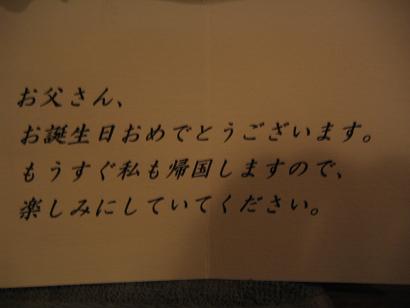 お父さん、
お誕生日おめでとうございます。
もうすぐ私も帰国しますので、
楽しみにしていてください。